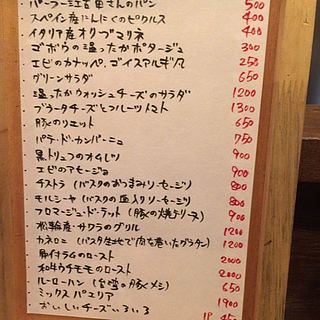 パーラー江古田さんのパン 500
スペイン産にんにくのピクルス 400
イタリア産オリーブマリネ 400
ゴボウの温ったかポタージュ 300
エビのカナッペ、ゴイスアルギア 250
グリーンサラダ 650
温ったかウォッシュチーズのサラダ 1200
ブラータチーズとフルーツトマト 1300
豚のリエット 650
パテ・ド・カンパーニュ 750
黒トリュフのオムレツ 900
エビのアヒージョ 900
チストラ(バスクのおつまみソーセージ) 800
モルシーヤ(バスクの血入りソーセージ) 800
フロマージュ・ド・テット(豚の焼テリーヌ) 900
松輪産・サワラのグリル 1200
カネロニ(パスタ生地で肉を巻いたグラタン) 1200
骨付ラムのロースト 2000
和牛ウチモモのロースト 2000
ルーローハン(台湾の豚メシ) 650
ミックスパエリア 1900
おいしいチーズいろいろ 1P 45